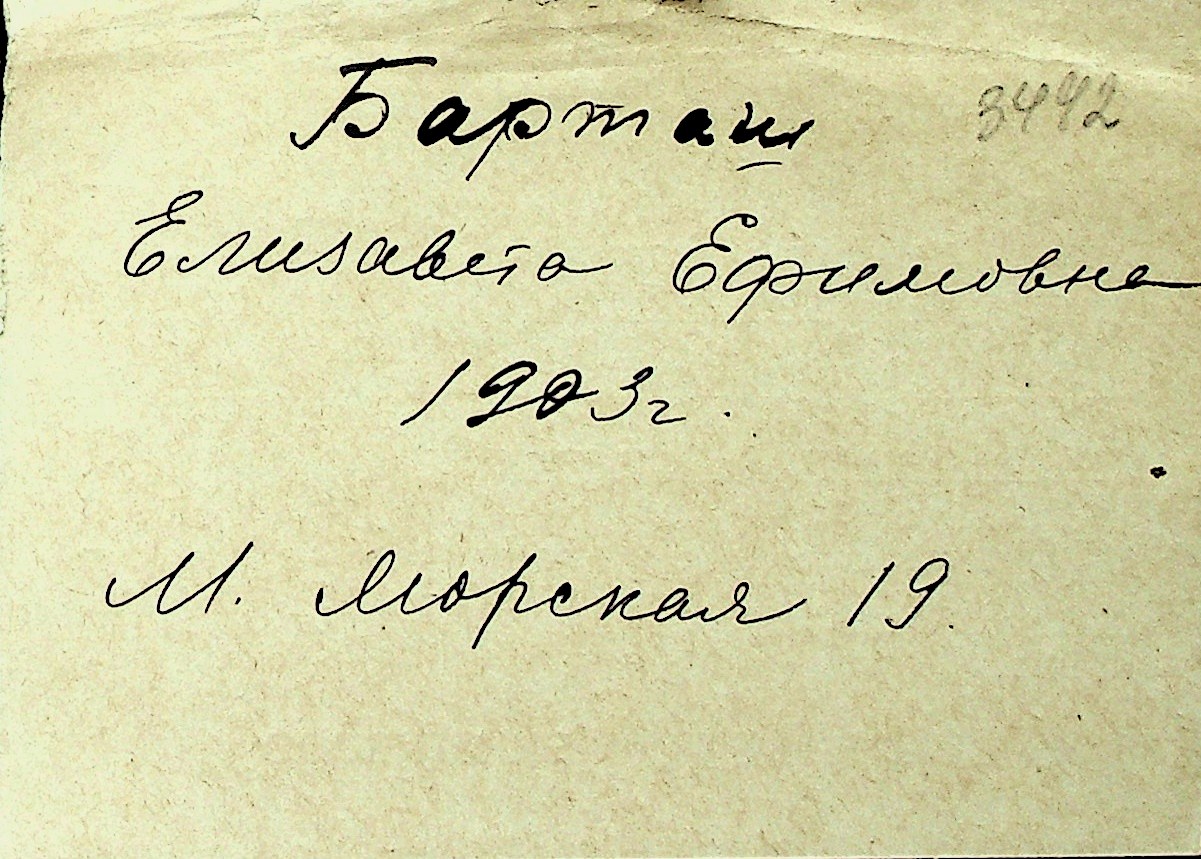 Барташ 3442
Елизавета Ефимовна
1903г.
М. Морская 19.